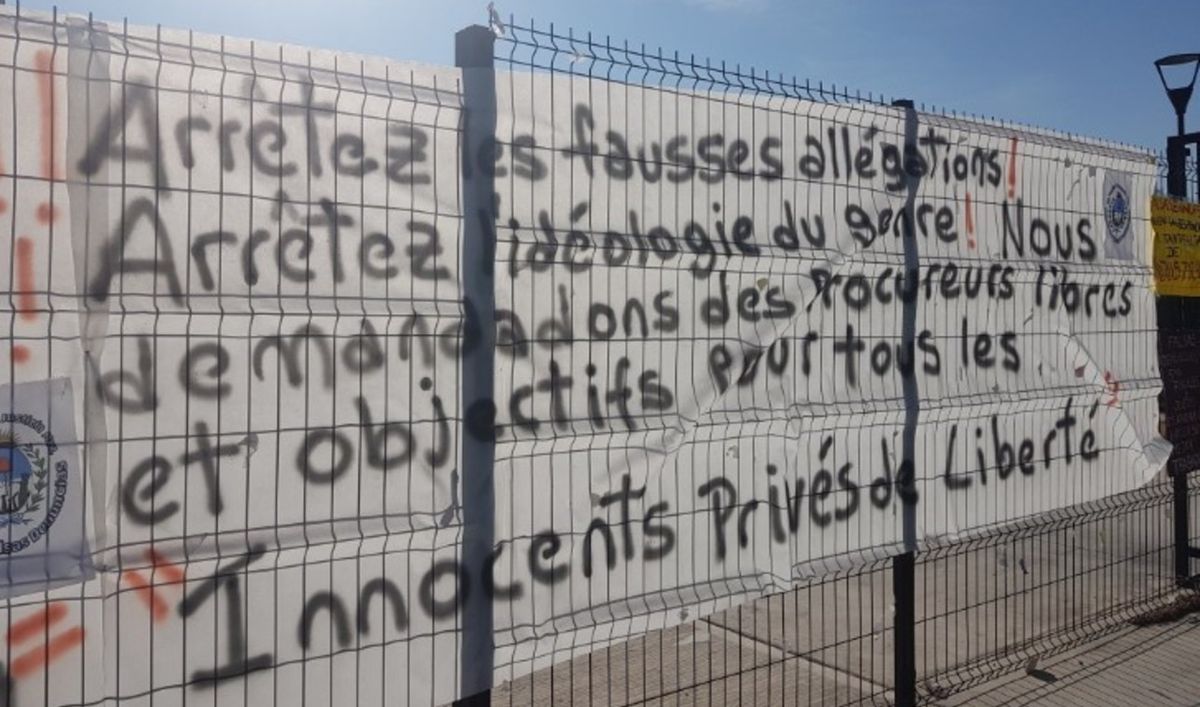 Arrêtez les fausses allégations!
Arrêtez l'idéologie du genre! Nous
demandadons des Procureurs libres
et objectifs pour tous les
"Innocents Privés de Liberté"
lsas Denuncias
DE